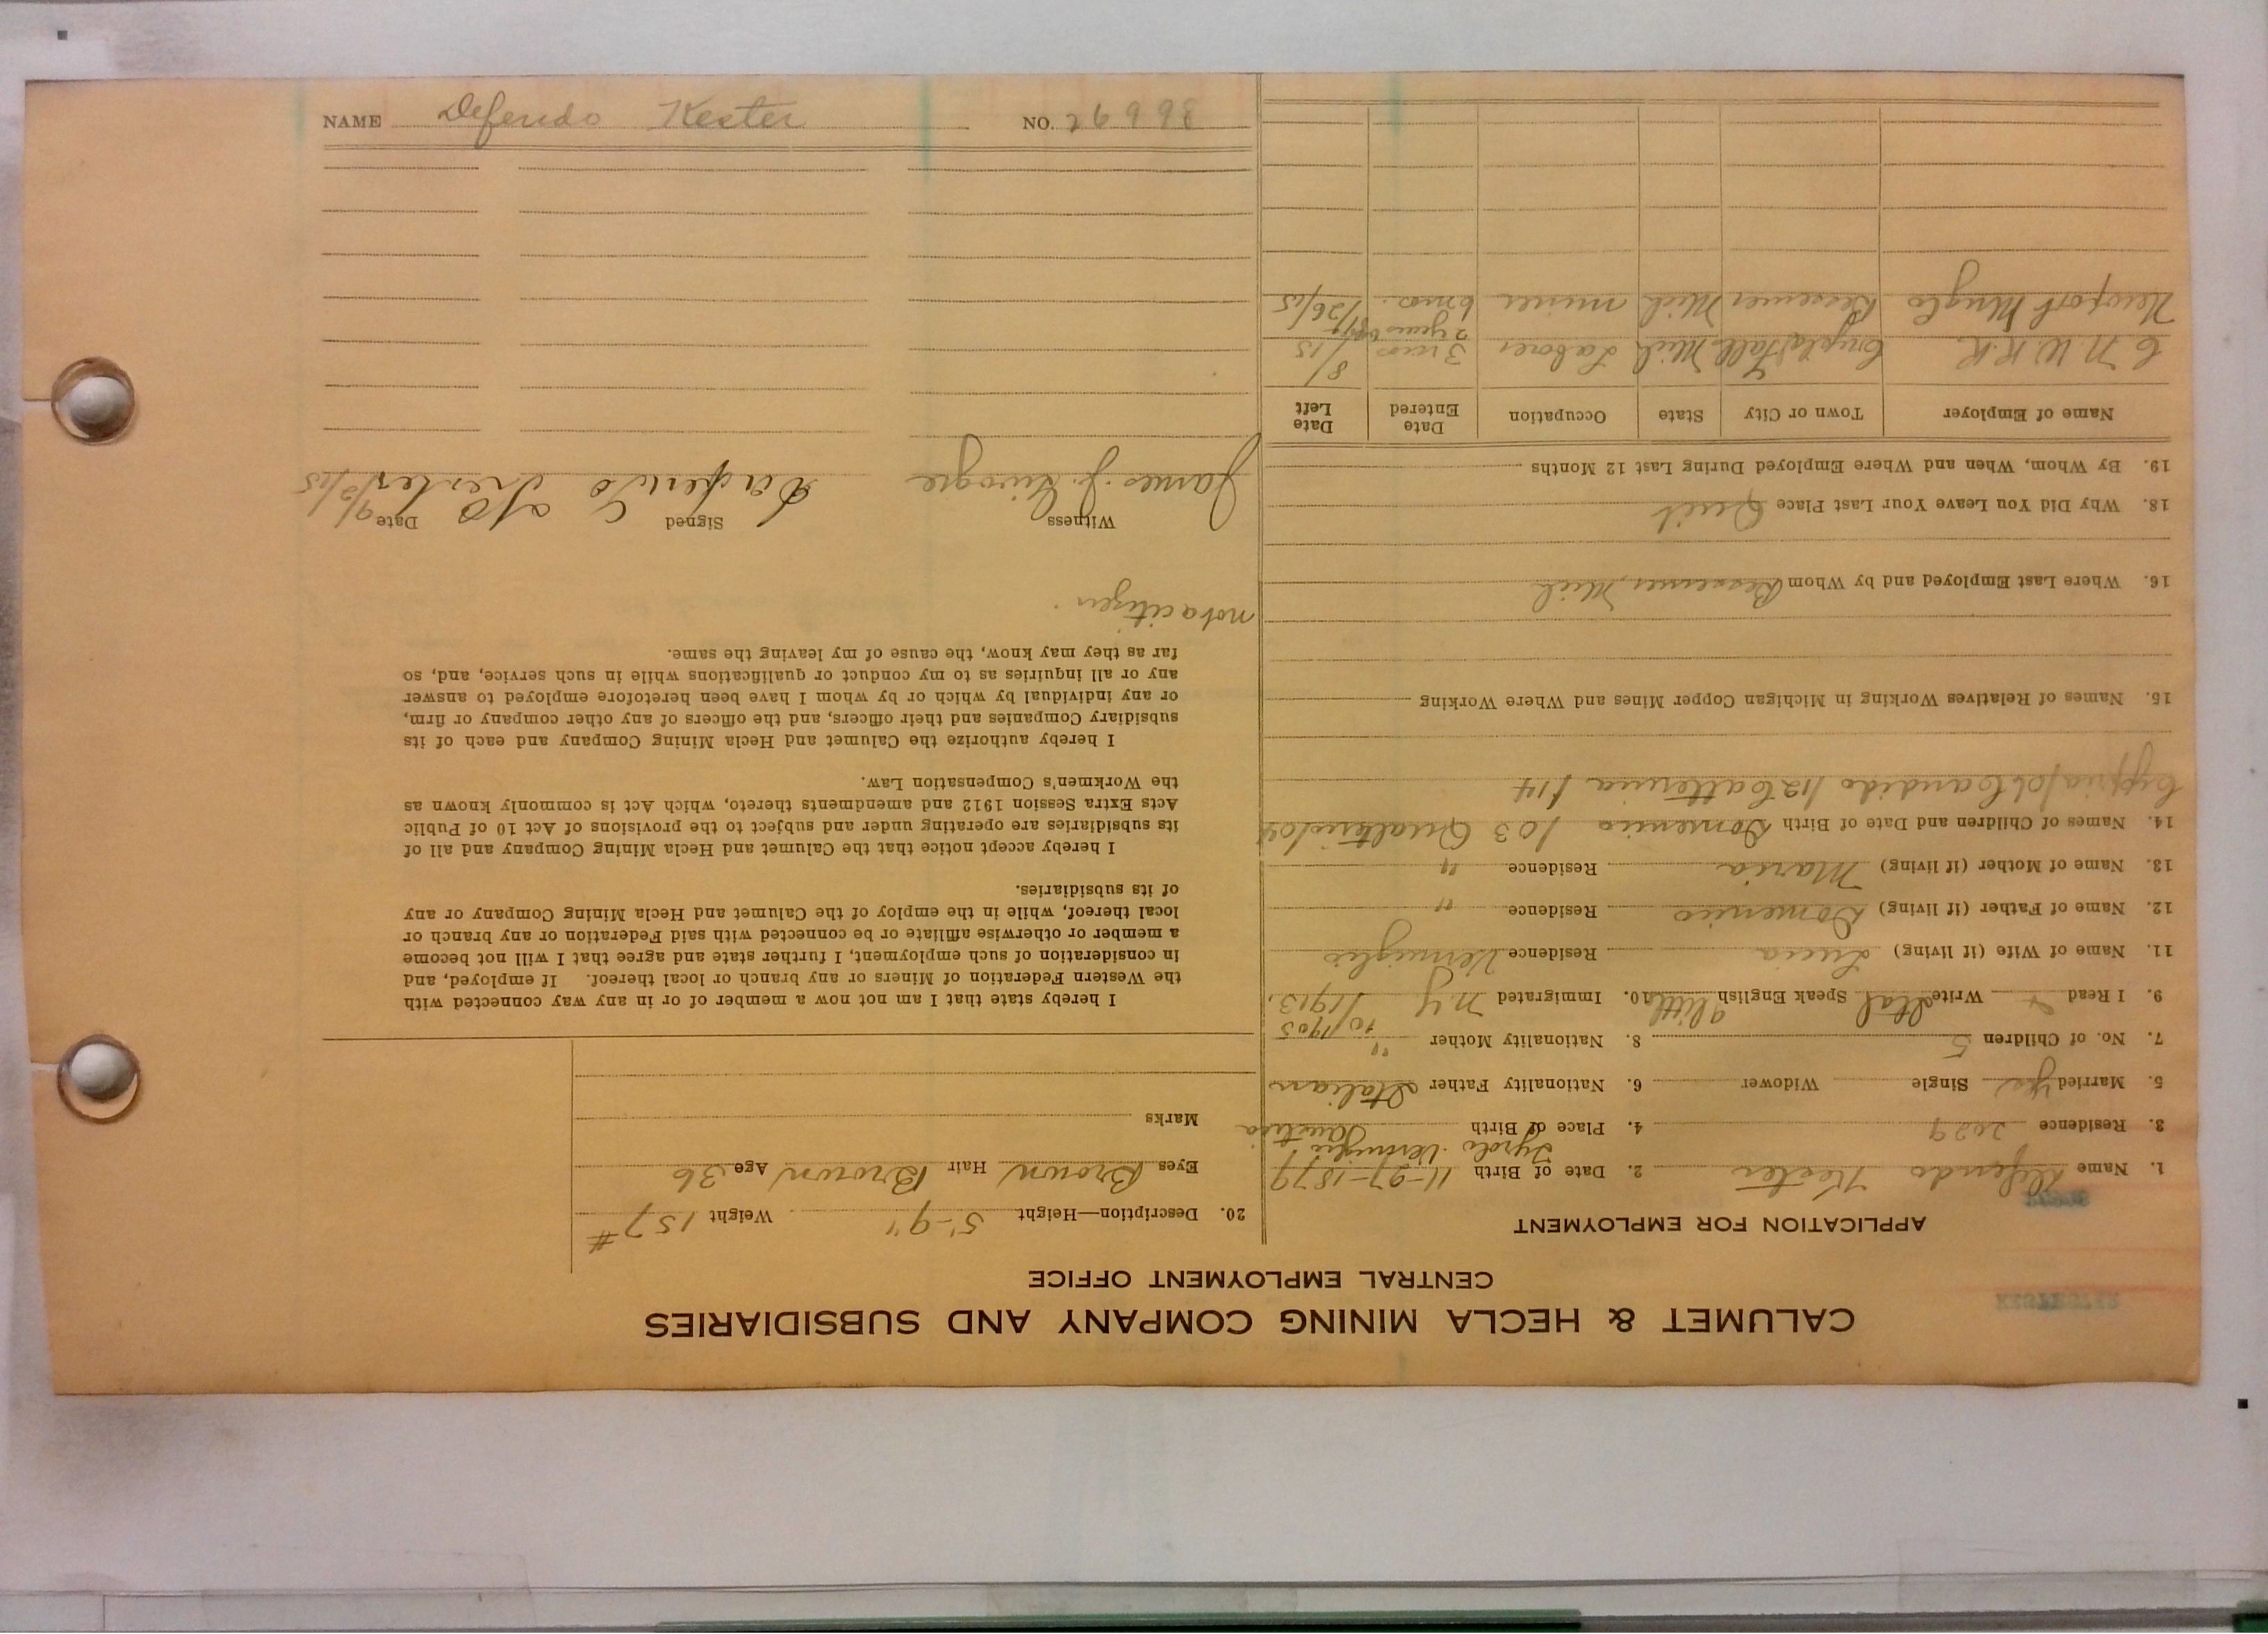 CALUMET & HECLA MINING COMPANY AND SUBSIDIARIES
CENTRAL EMPLOYMENT OFFICE
APPLICATION FOR EMPLOYMENT
1. Name Defendo Kester 2. Date of Birth 11-27-1879
Tyrol Vermiglio
3. Residence 2029 4. Place of Birth Austria
5. Married Yes Single Widower 6. Nationality Father Italian
7. No. of Children 5 8. Nationality Mother "
10/1905
9. I Read Write Ital Speak English little 10. Immigrated N Y 1/1913.
11. Name of Wife (if living) Lucia Residence Vermiglio
12. Name of Father (if living) Domenico Residence "
13. Name of Mother (if living) Maria Residence "
14. Names of Children and Date of Birth Domenico /03
Candido /12 Catterina /14
15. Names of Relatives Working in Michigan Copper Mines and Where Working
16. Where Last Employed and by Whom Bessemer, Mich
18. Why Did You Leave Your Last Place Quit
19. By Whom, When and Where Employed During Last 12 Months
Name of Employer Town or City State Occupation Date Entered Date Left
C N W R.R. Crystal Fall Mich Laborer 3 mos 8/15
2 years
Newport Mng Co Bessemer Mich miner 6 mos. 1/26/15
20. Description—Height 5'-9" Weight 157 #
Eyes Brown Hair Brown Age 36
Marks
I hereby state that I am not now a member of or in any way connected with
the Western Federation of Miners or any branch or local thereof. If employed, and
in consideration of such employment, I further state and agree that I will not become
a member or otherwise affiliate or be connected with said Federation or any branch or
local thereof, while in the employ of the Calumet and Hecla Mining Company or any
of its subsidiaries.
I hereby accept notice that the Calumet and Hecla Mining Company and all of
its subsidiaries are operating under and subject to the provisions of Act 10 of Public
Acts Extra Session 1912 and amendments thereto, which Act is commonly known as
the Workmen's Compensation Law.
I hereby authorize the Calumet and Hecla Mining Company and each of its
subsidiary Companies and their officers, and the officers of any other company or firm,
or any individual by which or by whom I have been heretofore employed to answer
any or all inquiries as to my conduct or qualifications while in such service, and, so
far as they may know, the cause of my leaving the same.
not a citizen.
Witness Signed Date
James J. 9/2/15
NAME Defendo Kester NO. 26998